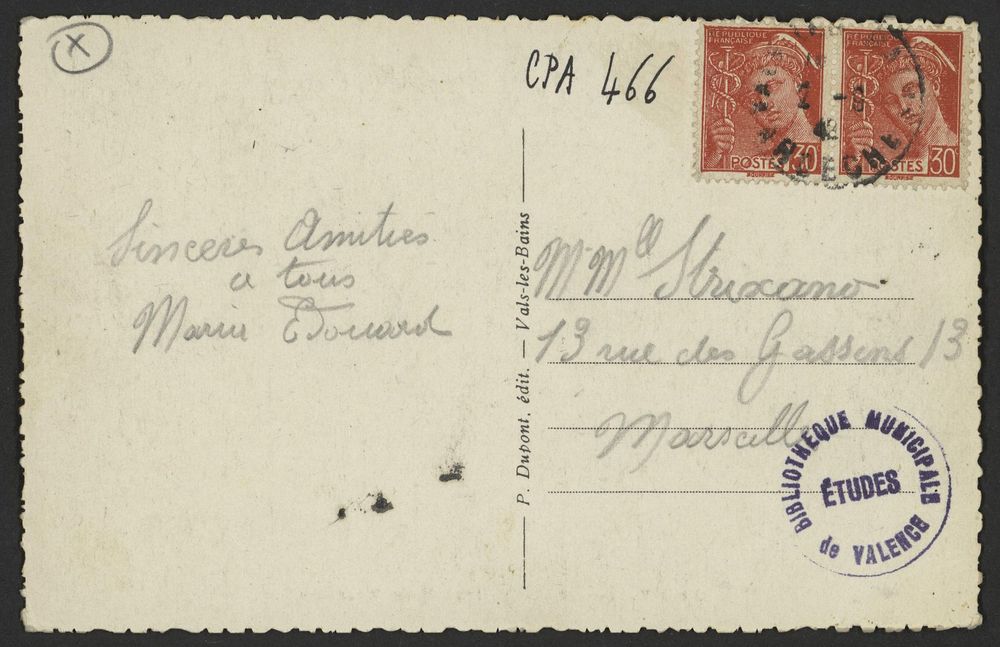 X
CPA 466
RÉPUBLIQUE
FRANÇAISE
POSTES 30
RÉPUBLIQUE
FRANÇAISE
POSTES 30
Sinceres Amitiés
a tous
Marie Edouard
P. Dupont, édit. — Vals-les-Bains
M Mlle Strixano
13 rue des Gassins 13
Marseille
BIBLIOTHEQUE MUNICIPALE
ÉTUDES
de VALENCE